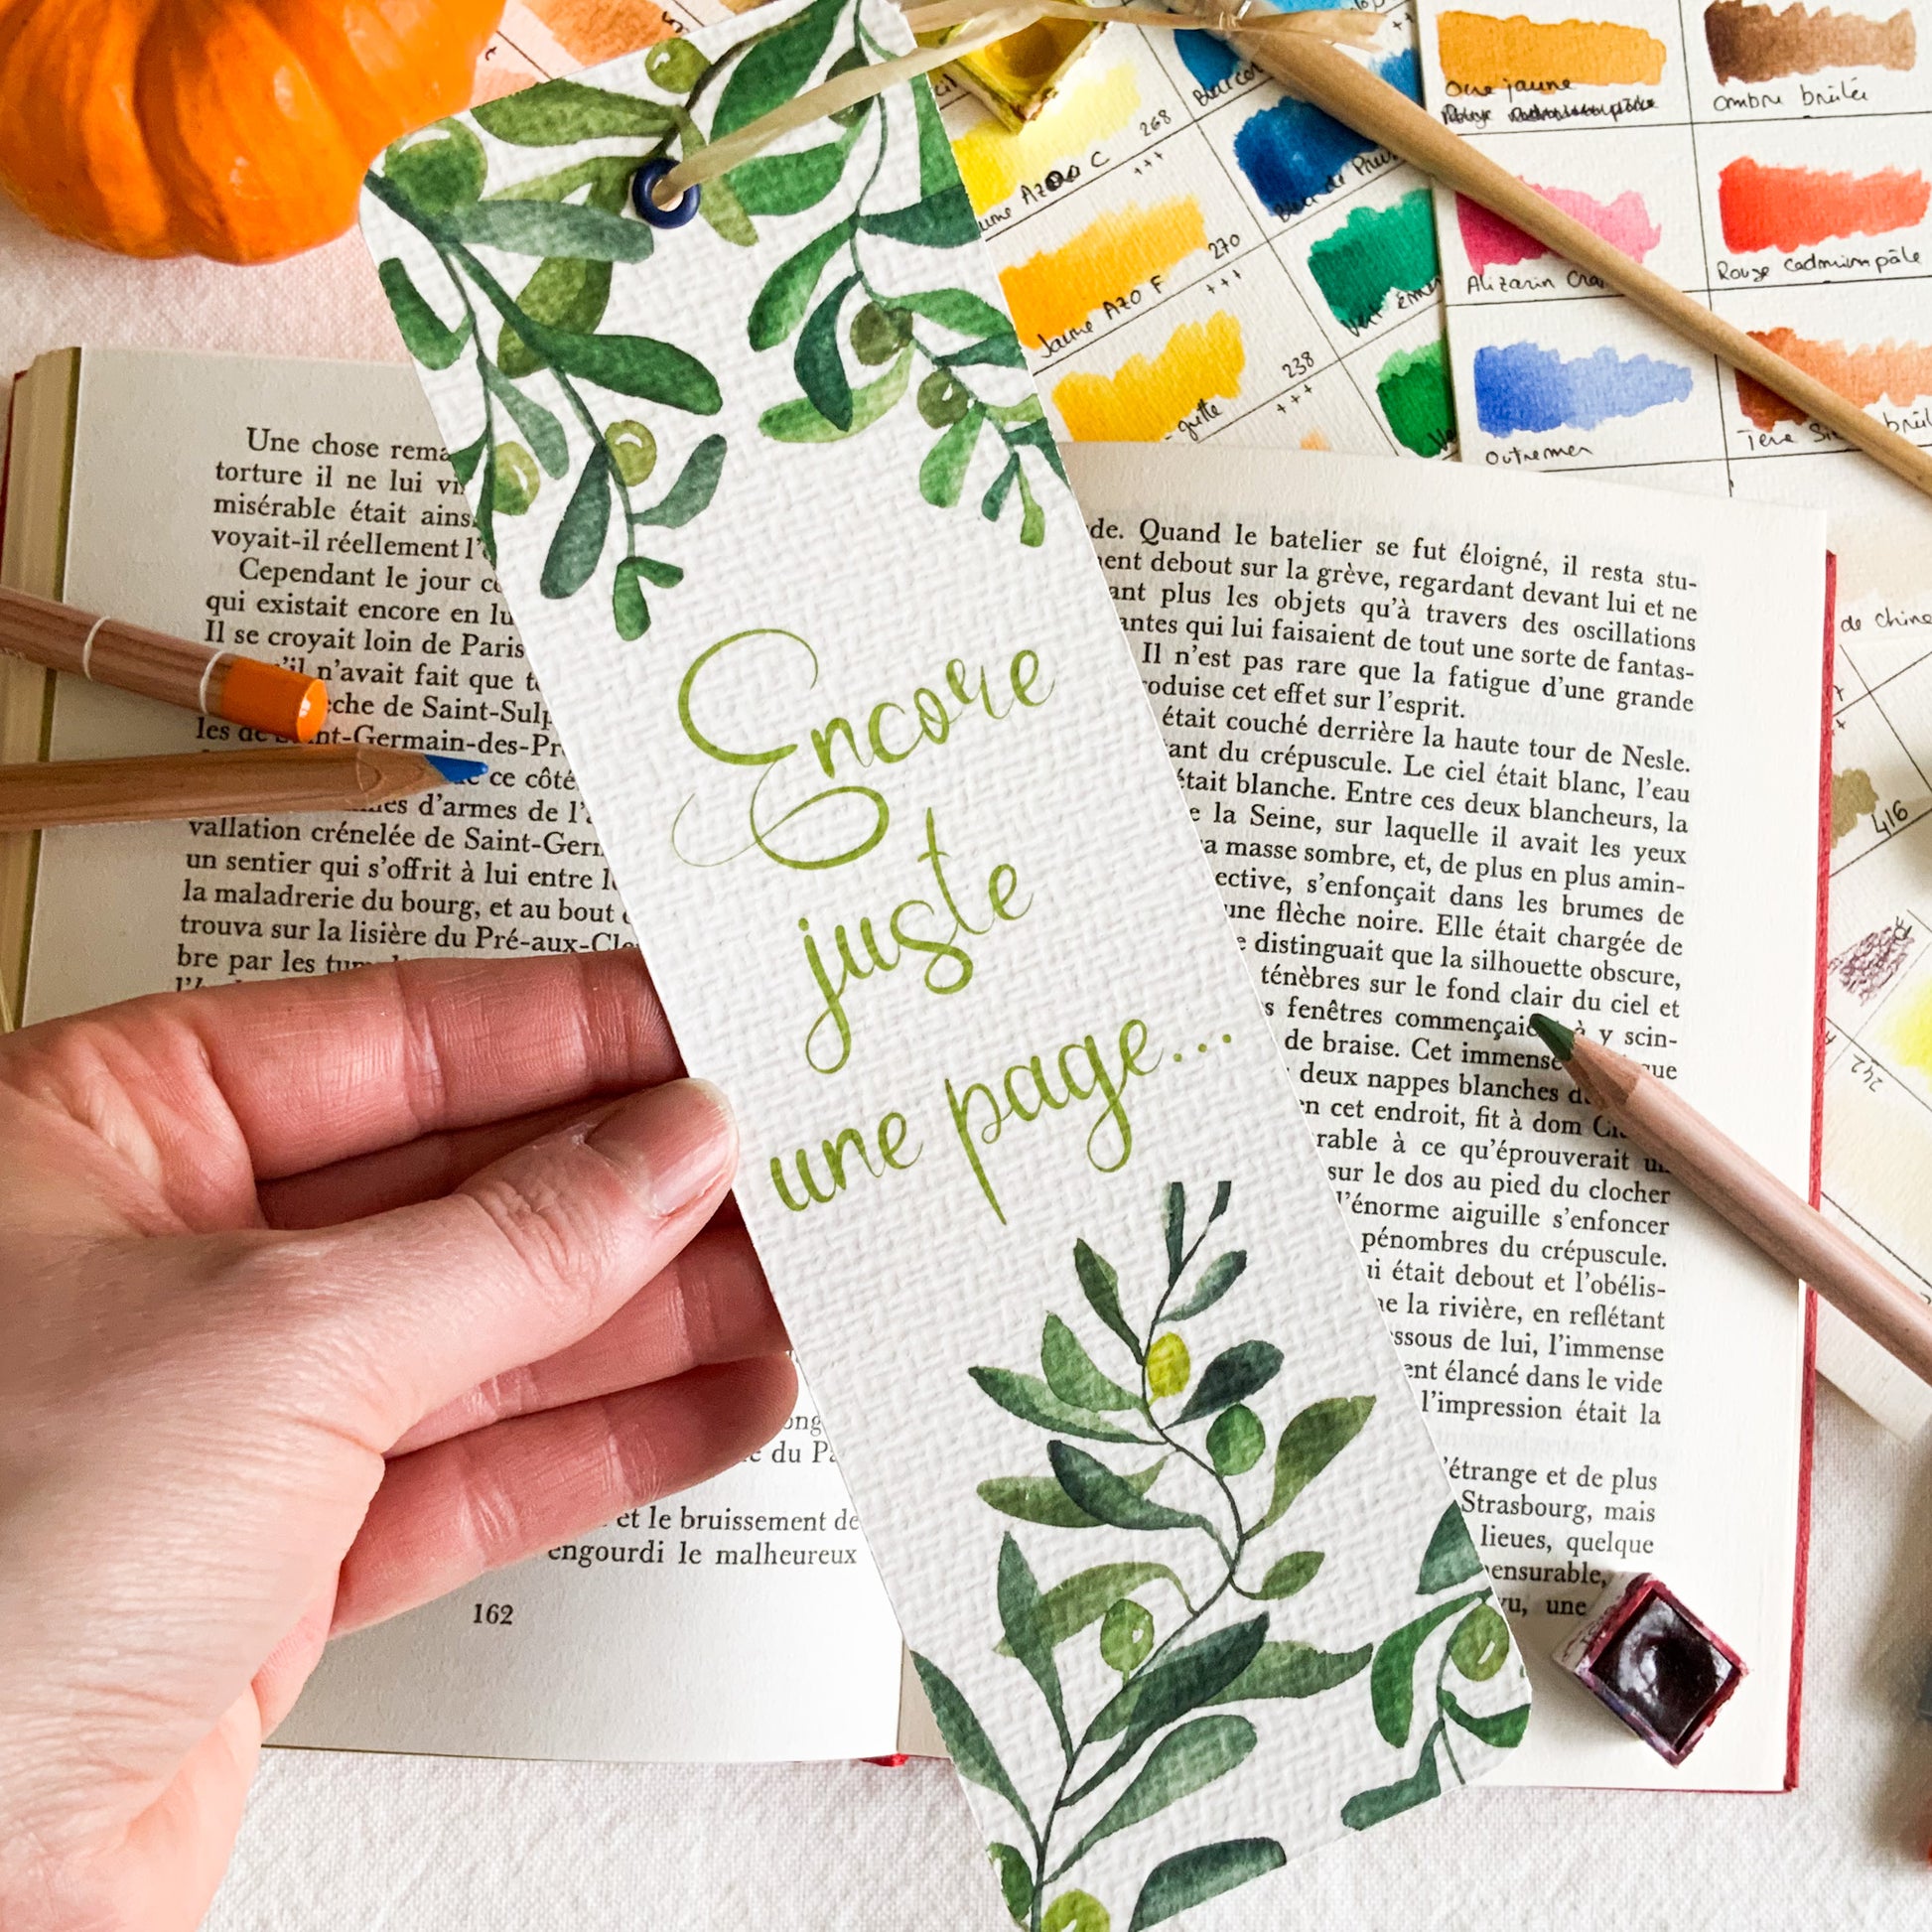 Encore
juste
une page...
Une chose rema
torture il ne lui
misérable était ains
voyait-il réellement
Cependant le jour
qui existait encore en
Il se croyait loin de Paris
n'avait fait que
de Saint-Sulp
les de Saint-Germain-des-Pr
ce côté
d'armes de
vallation crénelée de Saint-Germ
un sentier qui s'offrit à lui entre
la maladrerie du bourg, et au bout
trouva sur la lisière du Pré-aux-Cle
bre par les
du
et le bruissement de
engourdi le malheureux
162
de. Quand le batelier se fut éloigné, il resta stu-
ent debout sur la grève, regardant devant lui et ne
ant plus les objets qu'à travers des oscillations
antes qui lui faisaient de tout une sorte de fantas-
Il n'est pas rare que la fatigue d'une grande
roduise cet effet sur l'esprit.
était couché derrière la haute tour de Nesle.
tant du crépuscule. Le ciel était blanc, l'eau
était blanche. Entre ces deux blancheurs, la
la Seine, sur laquelle il avait les yeux
masse sombre, et, de plus en plus amin-
ective, s'enfonçait dans les brumes de
une flèche noire. Elle était chargée de
distinguait que la silhouette obscure,
ténèbres sur le fond clair du ciel et
s fenêtres commençai à y scin-
de braise. Cet immense que
deux nappes blanches
en cet endroit, fit à dom
rable à ce qu'éprouverait
sur le dos au pied du clocher
l'énorme aiguille s'enfoncer
pénombres du crépuscule.
était debout et l'obélis-
la rivière, en reflétant
ssous de lui, l'immense
ent élancé dans le vide
l'impression était la
étrange et de plus
Strasbourg, mais
lieues, quelque
ensurable,
une
268
+++
Jaune Azo F
270
+++
238
+++
Ocre jaune
Ombre brûlée
Alizarin
Rouge Cadmium pâle
Outremer
de Chine
416
242